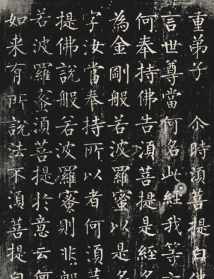 重弟子 尒時須菩提白
言世尊當何名此經我等
何奉持佛告須菩提是經
為金剛般若波羅蜜以是名
字汝當奉持所以者何須
提佛說般若波羅蜜則非般
若波羅蜜須菩提於意云何
如來有所說法不須菩提白